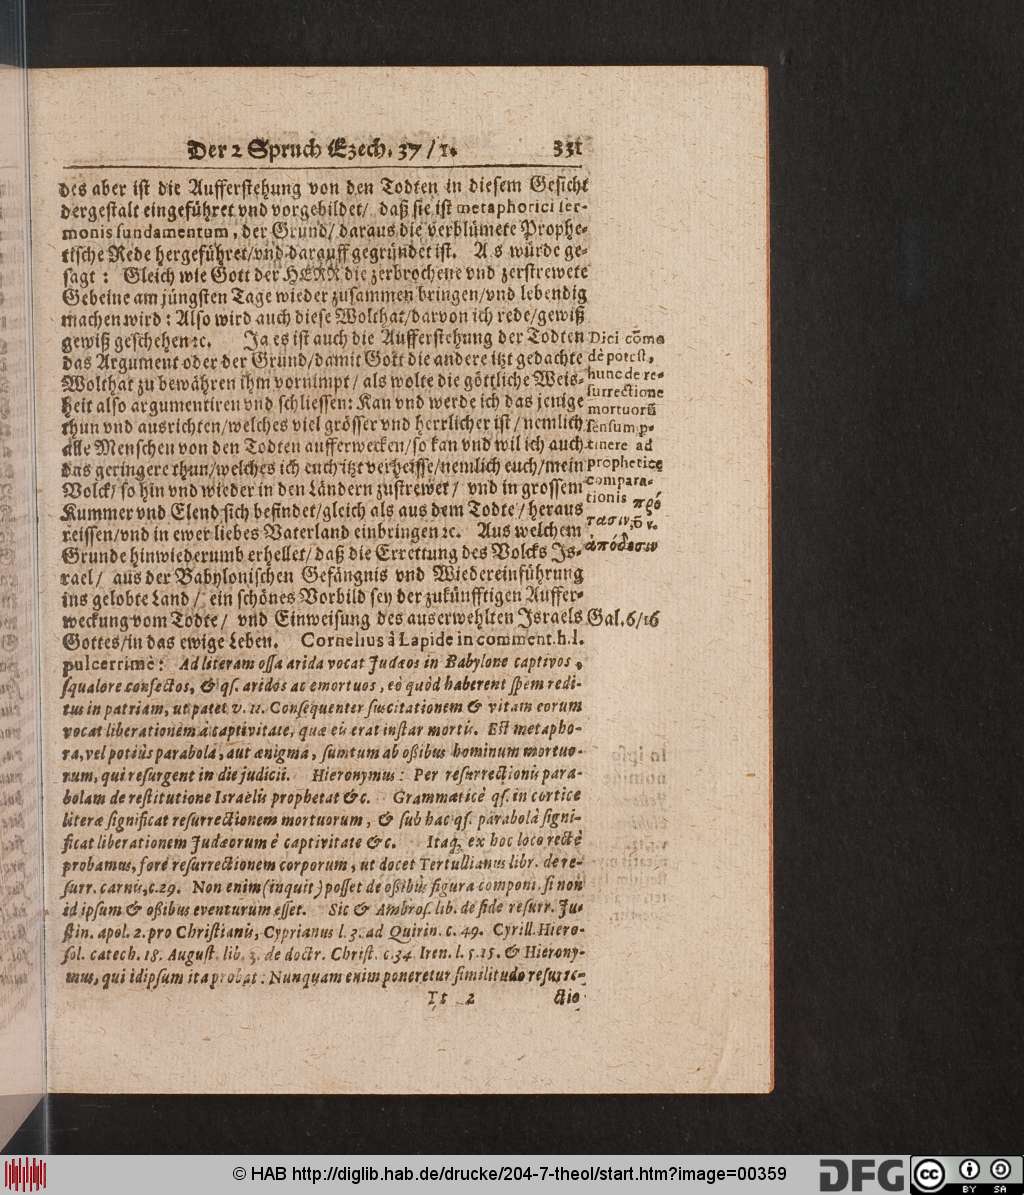 Der 2 Spruch Ezech. 37/1. 331
des aber ist die Aufferstehung von den Todten in diesem Gesicht
dergestalt eingeführet vnd vorgebildet/ daß sie ist metaphorici ser-
monis fundamentum, der Grund/ daraus die verblümete Prophe-
tische Rede hergeführet/vnd darauff gegründet ist. Als würde ge-
sagt: Gleich wie Gott der HERR die zerbrochene vnd zerstrewete
Gebeine am jüngsten Tage wieder zusammen bringen/vnd lebendig
machen wird: Also wird auch diese Wolthat/darvon ich rede/gewiß
gewiß geschehen ꝛc. Ja es ist auch die Aufferstehung der Todten
das Argument oder der Grund/damit Gott die andere itzt gedachte
Wolthat zu bewähren ihm vornimpt/ als wolte die göttliche Weis-
heit also argumentiren vnd schliessen: Kan vnd werde ich das jenige
thun vnd ausrichten/welches viel grösser vnd herrlicher ist/nemlich
alle Menschen von den Todten aufferwecken/so kan vnd wil ich auch
das geringere thun/welches ich euch itzt verheisse/nemlich euch/mein
Volck/ so hin vnd wieder in den Ländern zustrewet/ vnd in grossem
Kummer vnd Elend sich befindet/gleich als aus dem Todte/ heraus
reissen/vnd in ewer liebes Vaterland einbringen ꝛc. Aus welchem
Grunde hinwiederumb erhellet/ daß die Errettung des Volcks Is-
rael/ aus der Babylonischen Gefängnis vnd Wiedereinführung
ins gelobte Land/ ein schönes Vorbild sey der zukünfftigen Auffer-
weckung vom Todte/ vnd Einweisung des auserwehlten Israels
Gottes/in das ewige Leben. Cornelius à Lapide in comment. h. l.
pulcerrimè: Ad literam ossa arida vocat Judæos in Babylone captivos,
squalore confectos, & qs. aridos ac emortuos, eò quòd haberent spem redi-
tus in patriam, ut patet v. 11. Consequenter suscitationem & vitam eorum
vocat liberationem à captivitate, quæ eis erat instar mortis. Est metapho-
ra, vel potiùs parabola, aut ænigma, sumtum ab ossibus hominum mortuo-
rum, qui resurgent in die judicii. Hieronymus: Per resurrectionis para-
bolam de restitutione Israëlis prophetat &c. Grammaticè qs. in cortice
literæ significat resurrectionem mortuorum, & sub hac qs. parabolâ signi-
ficat liberationem Judæorum è captivitate &c. Itaq; ex hoc loco rectè
probamus, fore resurrectionem corporum, ut docet Tertullianus libr. de re-
surr. carnis, c. 29. Non enim (inquit) posset de ossibus figura componi, si non
id ipsum & ossibus eventurum esset. Sic & Ambros. lib. de fide resurr. Ju-
stin. apol. 2. pro Christianis, Cyprianus l. 3. ad Quirin. c. 49. Cyrill. Hiero-
sol. catech. 18. August. lib. 3. de doctr. Christ. c. 34. Iren. l. 5. 15. & Hierony-
mus, qui id ipsum ita probat: Nunquam enim poneretur similitudo resurre-
Tt 2 ctio
Dici cōmo
dè potest,
hunc de re-
surrectione
mortuorū
sensum p-
tinere ad
propheticæ
compara-
tionis πρό
τασιν, ō v.
ἀπόδοσιν
Gal. 6/16
© HAB http://diglib.hab.de/drucke/204-7-theol/start.htm?image=00359
DFG
cc BY SA